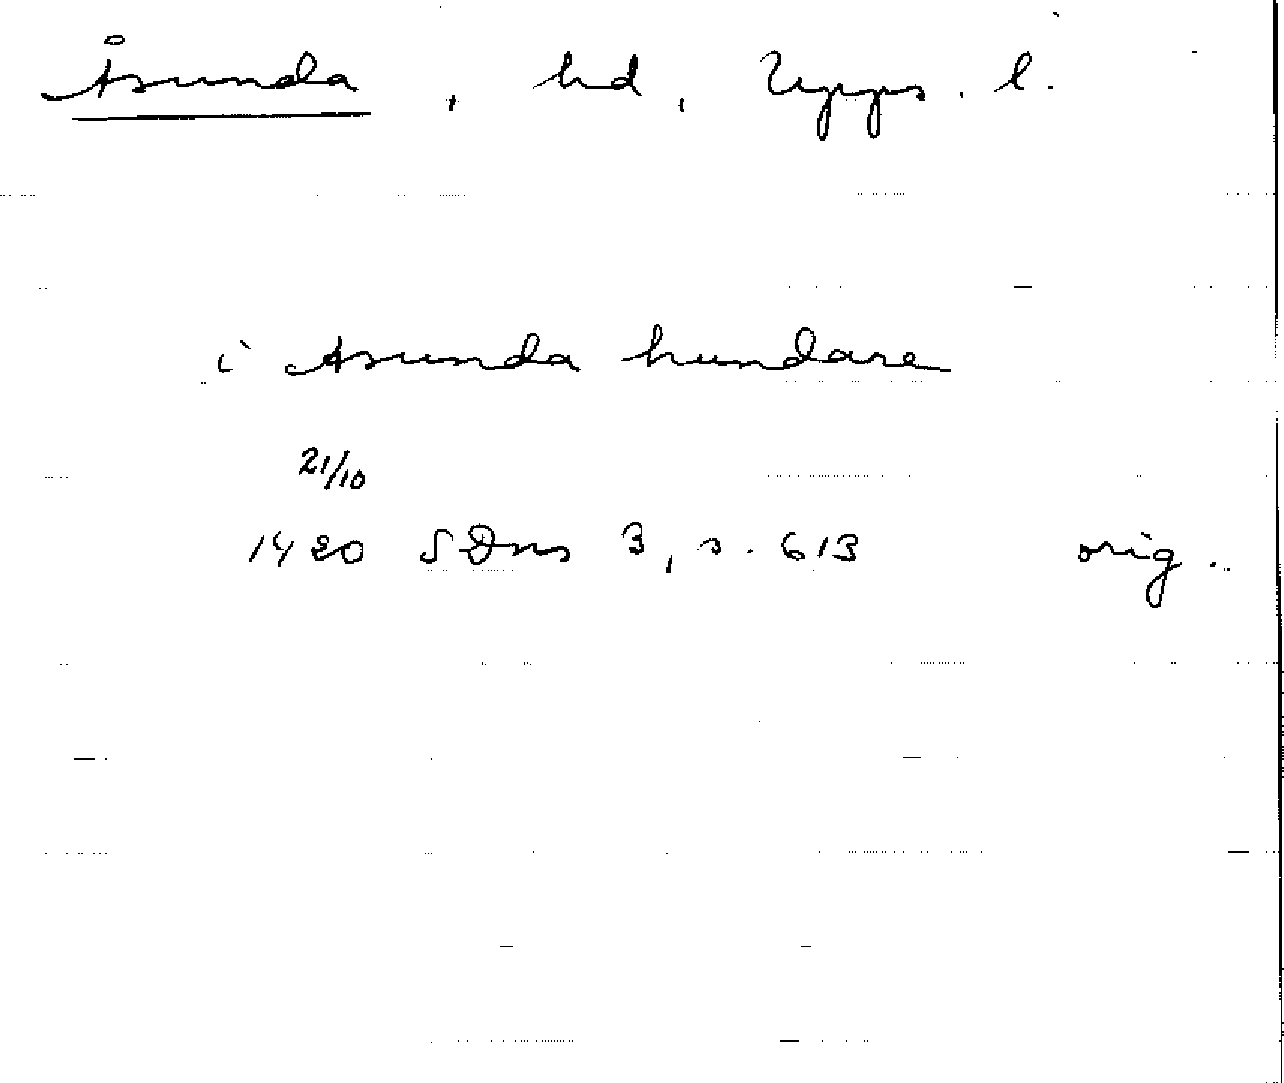 Åsunda, hd, Upps. l.
i Asunda hundare
21/10
1420 SDns 3, s. 613 orig.